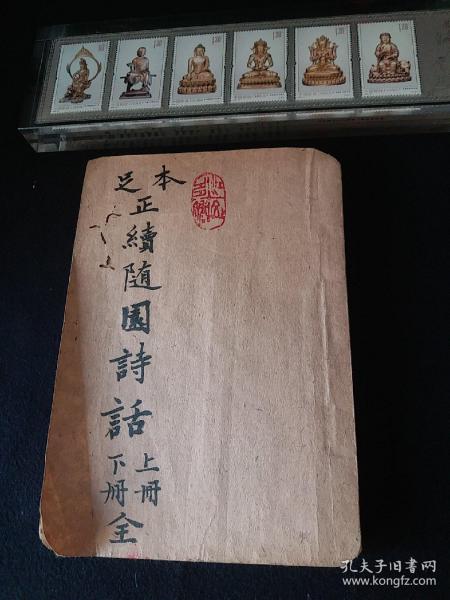 足本
正續随園詩話
上冊
下冊
全
孔夫子旧书网
www.kongfz.com